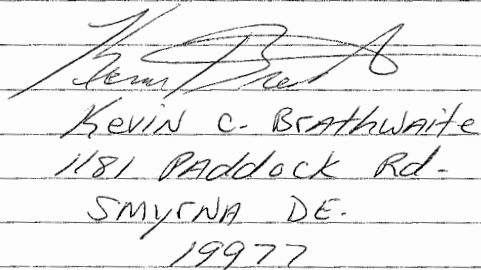 Kevin Brat
Kevin C. Brathwaite
1181 PAddock Rd.
SMyrNA DE.
19977